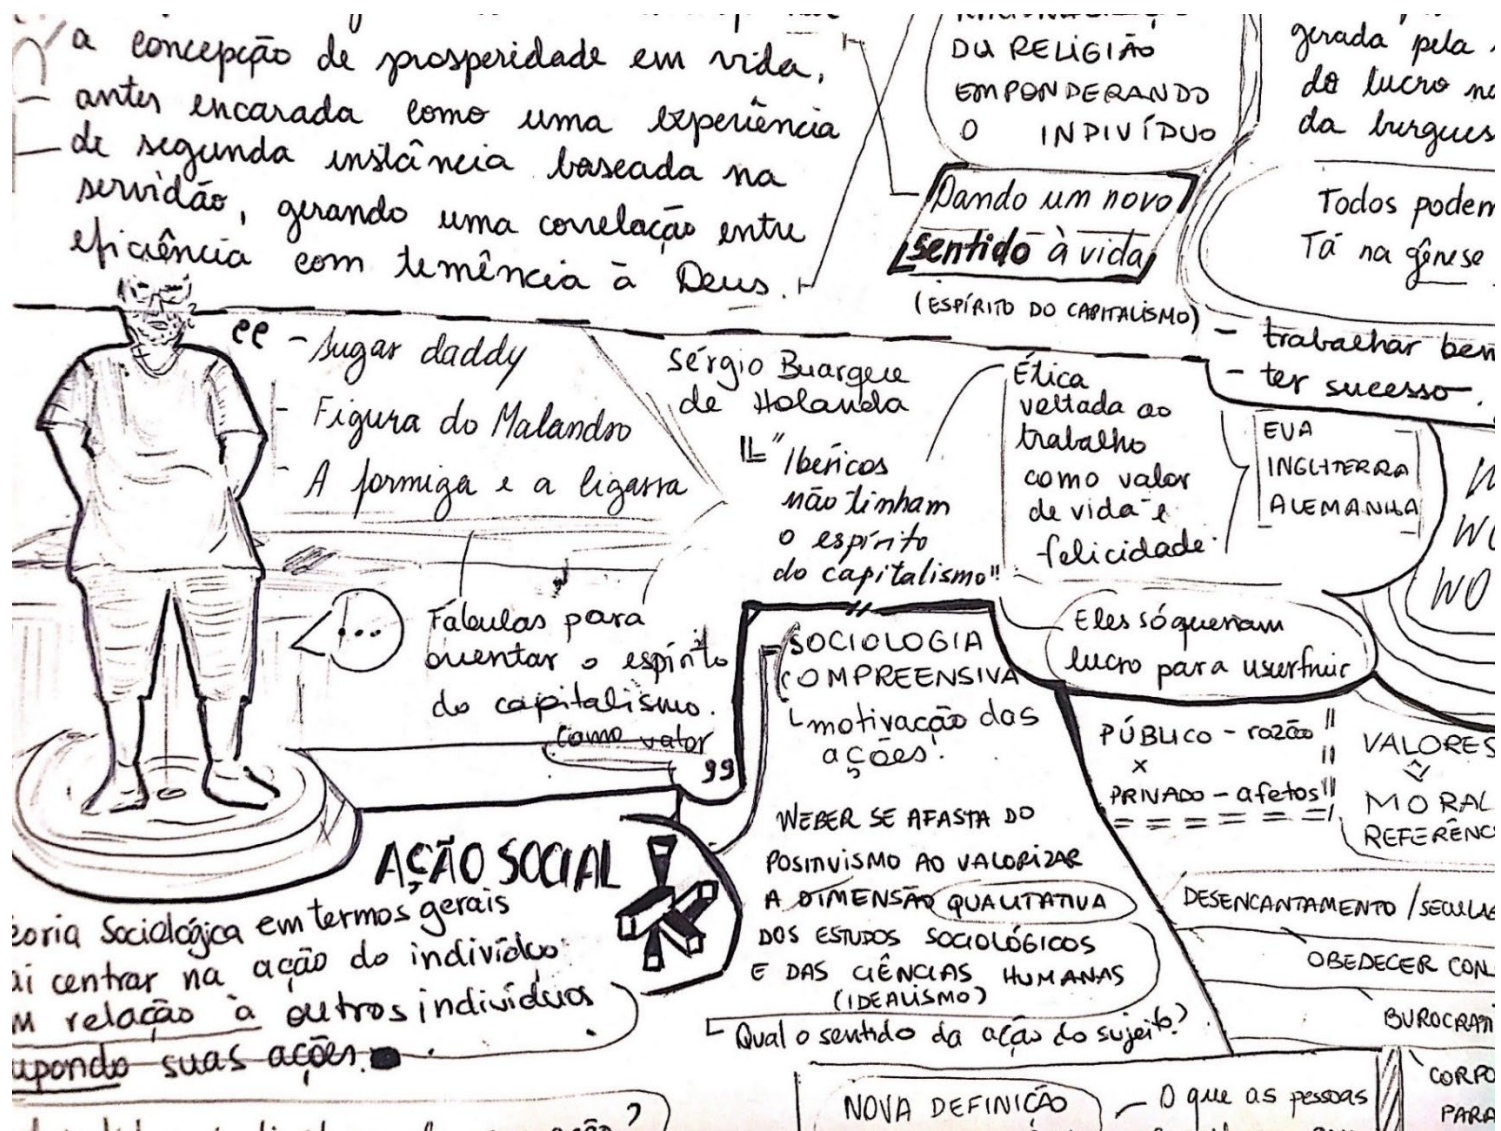 a concepção de prosperidade em vida,
antes encarada como uma experiência
de segunda instância baseada na
servidão, gerando uma correlação entre
eficiência com temência à Deus.
DU RELIGIÃO
EMPONDERANDO
O INDIVÍDUO
Dando um novo
sentido à vida
(ESPÍRITO DO CAPITALISMO)
gerada pela
do lucro
da
Todos podem
Tá na gênese
- trabalhar
- ter sucesso.
- Sugar daddy
- Figura do Malandro
- A formiga e a ligarra
Fábulas para
orientar o espírito
do capitalismo.
como valor
Sérgio Buarque
de Holanda
"Ibéricos
não tinham
o espírito
do capitalismo"
Ética
voltada ao
trabalho
como valor
de vida e
felicidade.
EUA
INGLITERRA
ALEMANHA
WO
Eles só queriam
lucro para usurfruir
SOCIOLOGIA
COMPREENSIVA
motivação das
ações.
WEBER SE AFASTA DO
POSITIVISMO AO VALORIZAR
A DIMENSÃO QUALITATIVA
DOS ESTUDOS SOCIOLÓGICOS
E DAS CIÊNCIAS HUMANAS
(IDEALISMO)
Qual o sentido da ação do sujeito?
PÚBLICO - razão
x
PRIVADO - afetos
VALORES
MORAL
DESENCANTAMENTO /
OBEDECER
AÇÃO SOCIAL
Sociológica em termos gerais
centrar na ação do indivíduo
relação à outros indivíduos
suas ações.
NOVA DEFINIÇÃO
O que as pessoas
PARA